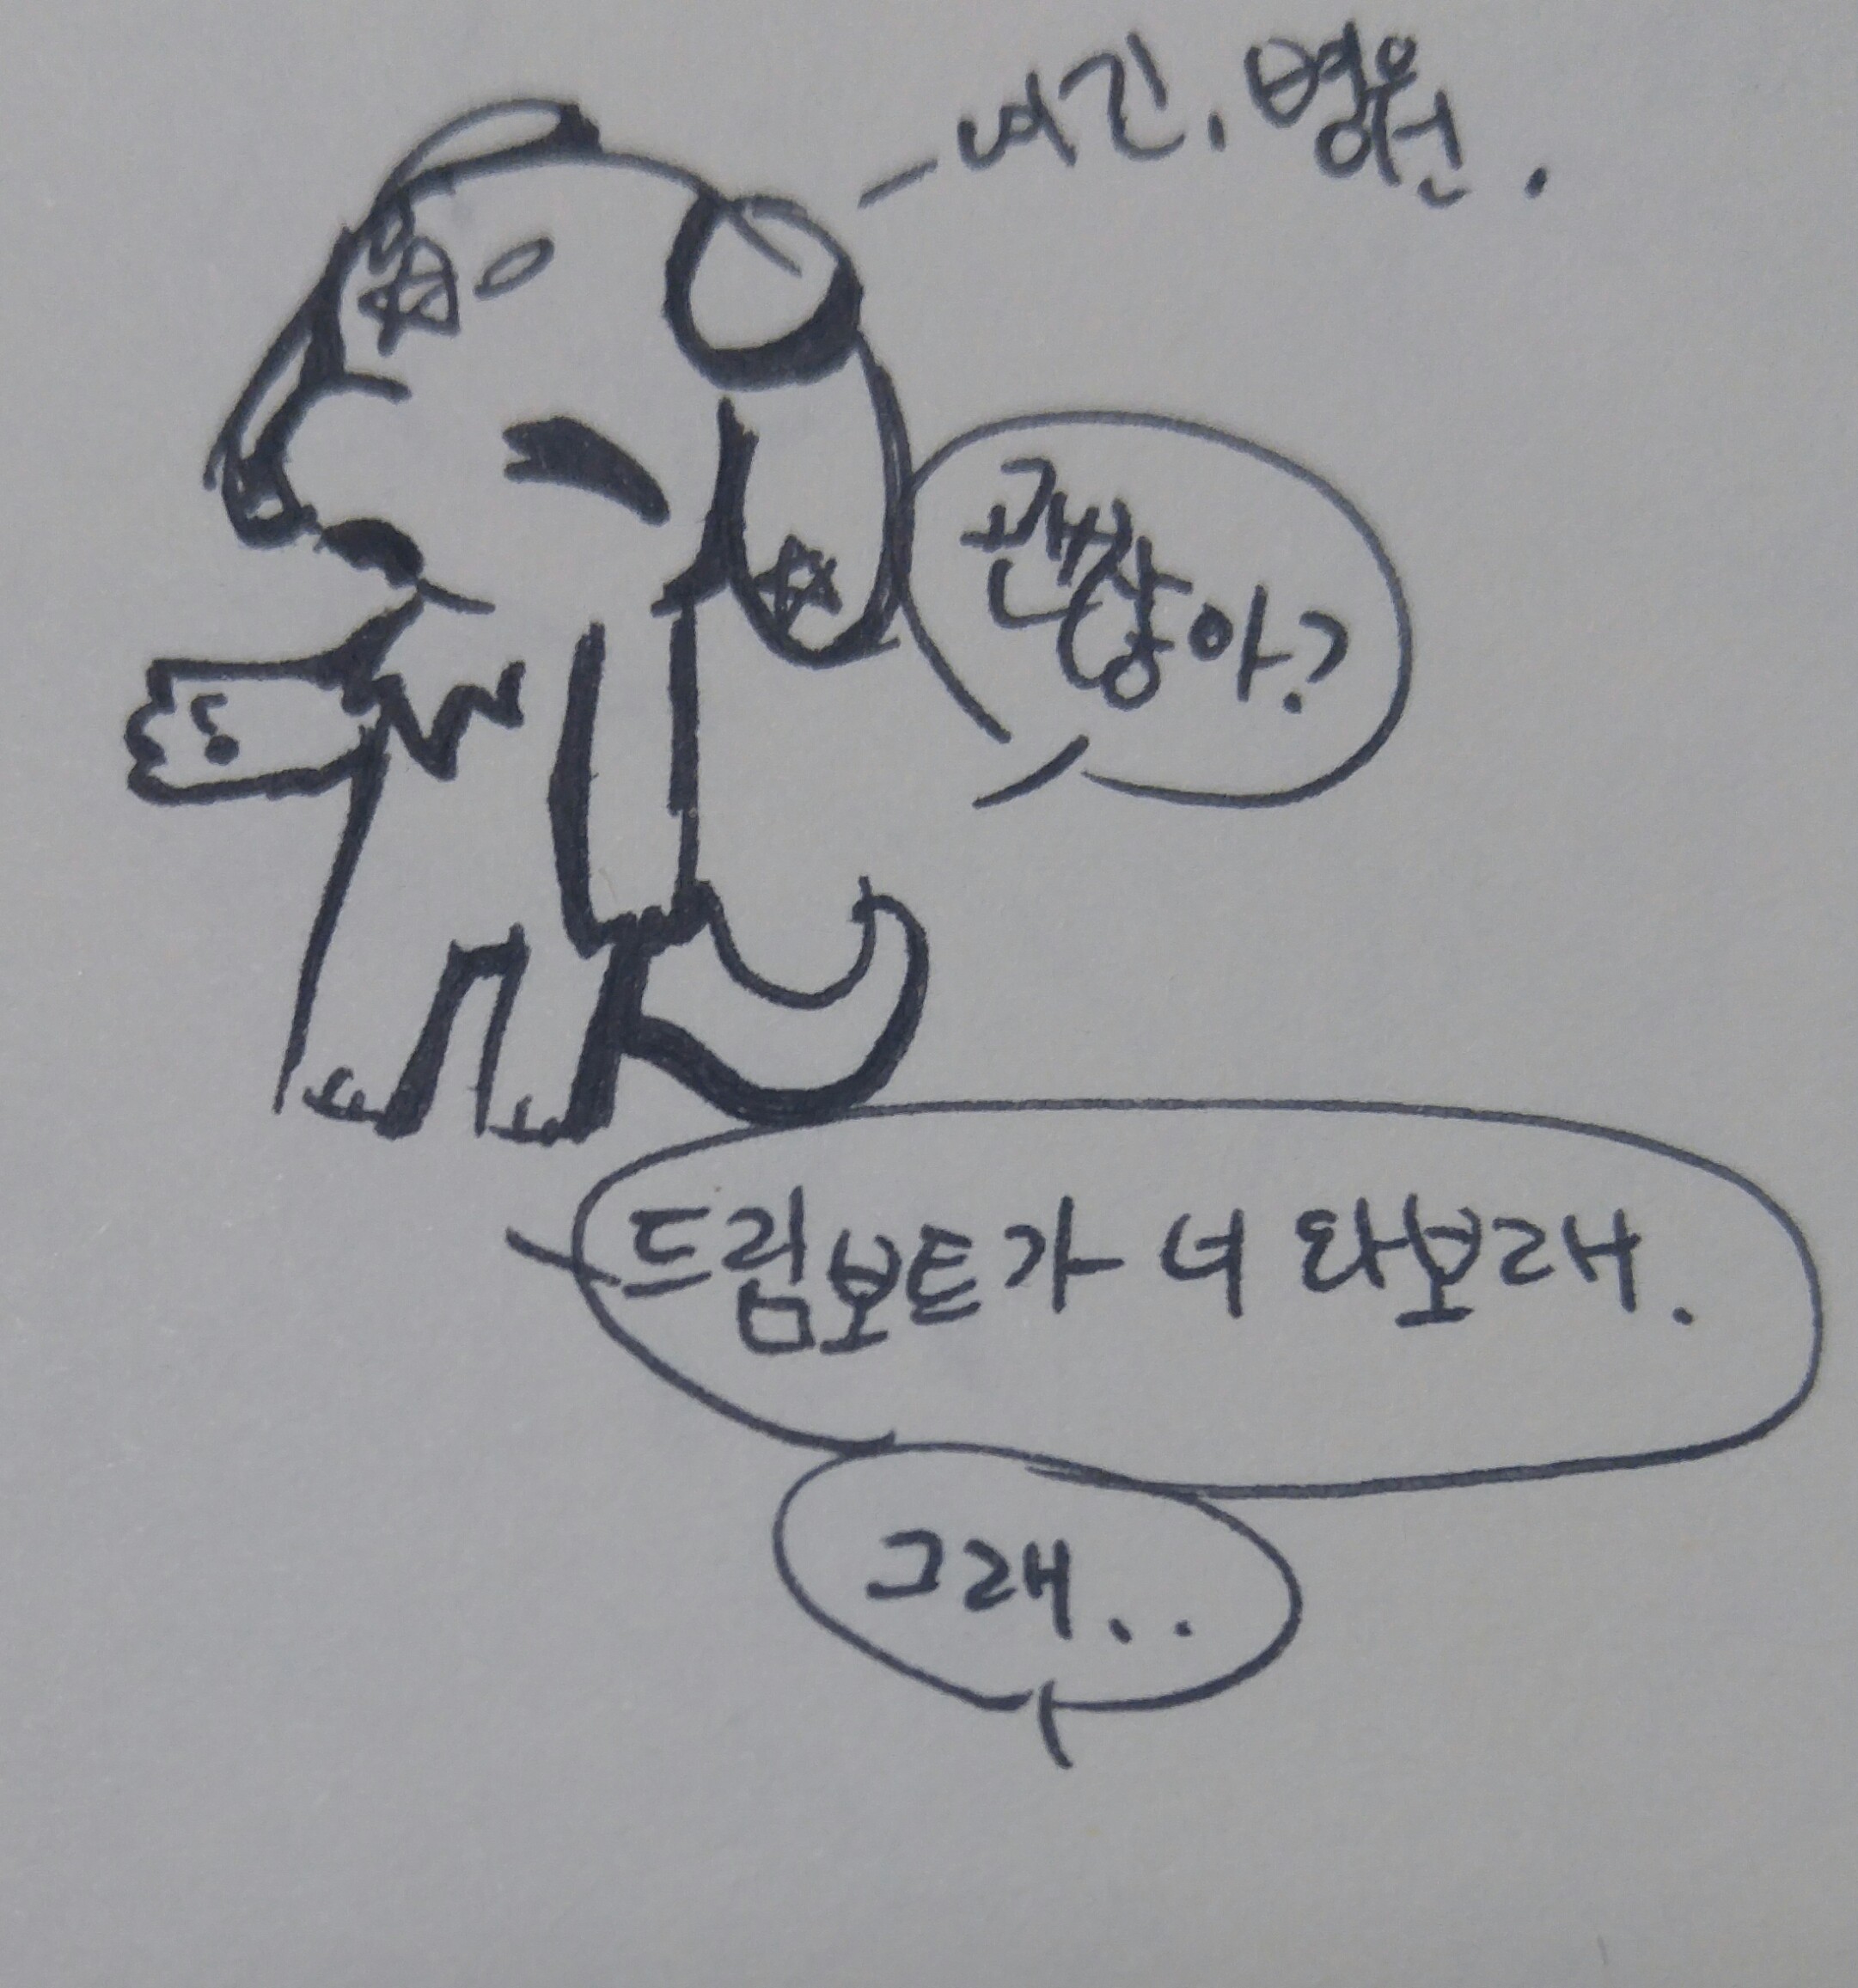 여긴. 병원.
괜찮아?
드림보트가 너 와보래.
그래..